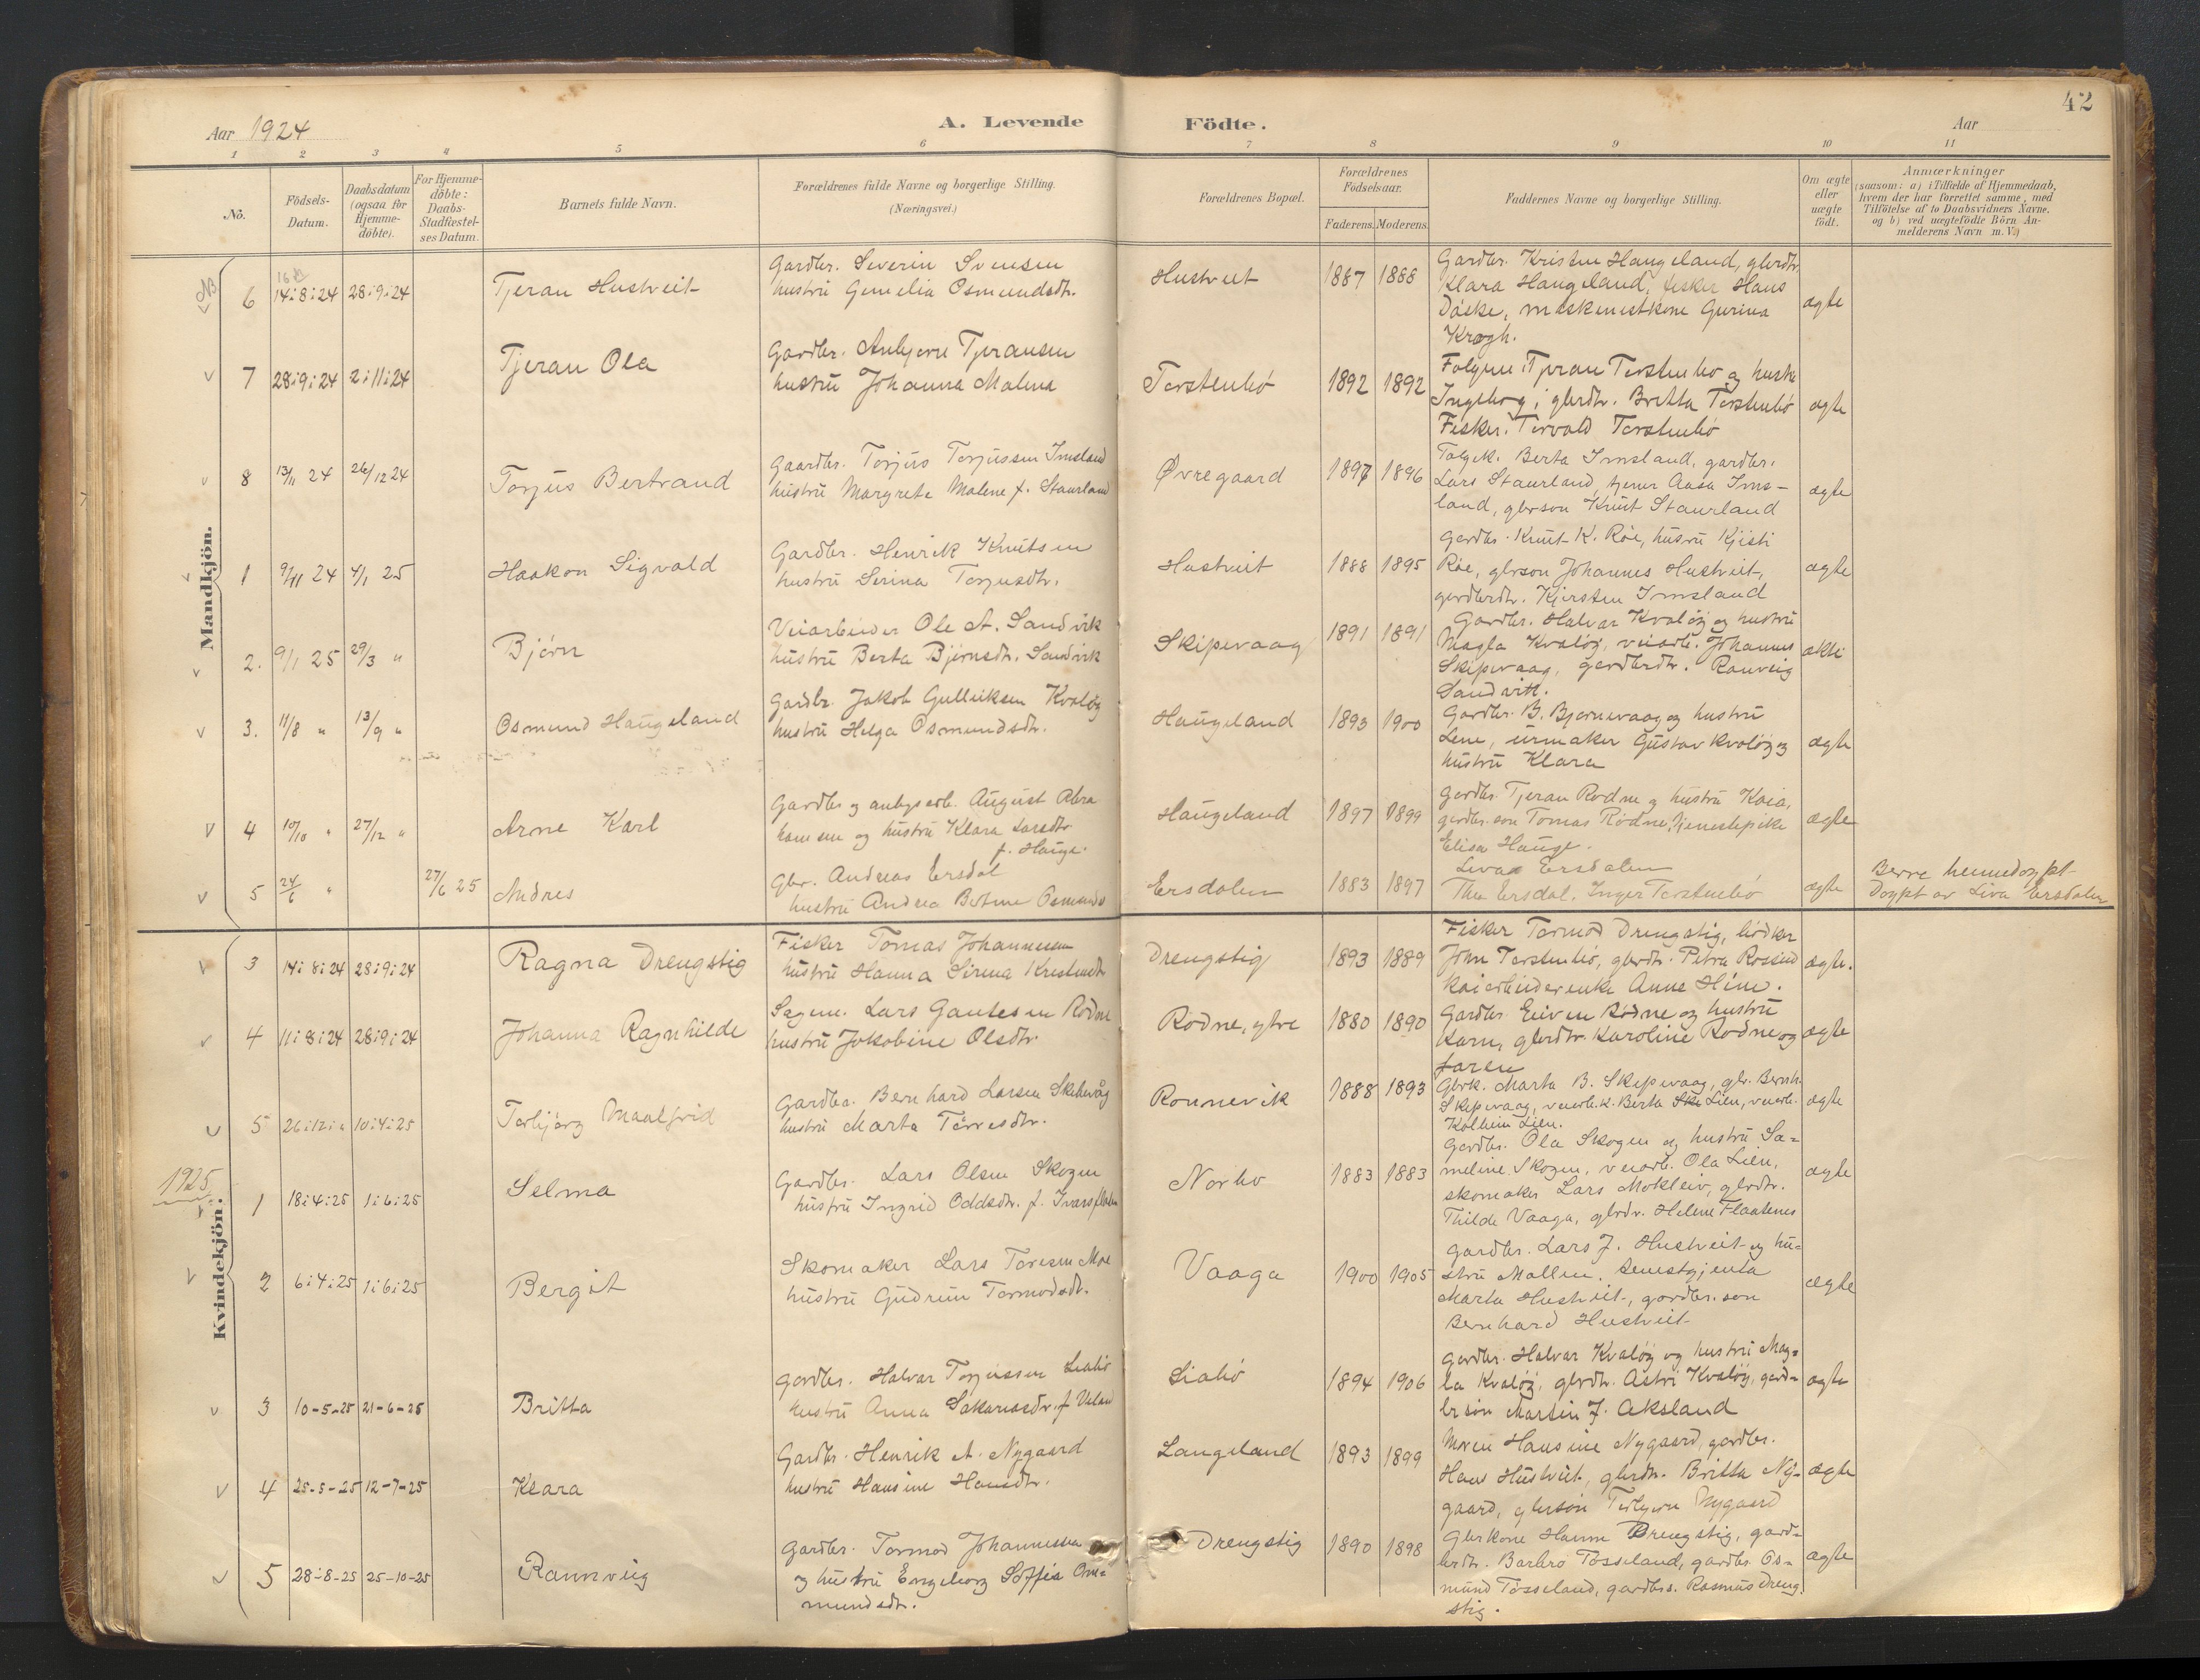 42
Aar 1924
A. Levende Födte.
Aar
1 2 3 4 5 6 7 8 9 10 11
No.
Födsels-Datum.
Daabsdatum (ogsaa for Hjemme-döbte).
For Hjemme-döbte: Daabs-Stadfæstel-ses Datum.
Barnets fulde Navn.
Forældrenes fulde Navne og borgerlige Stilling.
(Næringsvei.)
Forældrenes Bopæl.
Forældrenes Födselsaar.
Faderens. Moderens.
Faddernes Navne og borgerlige Stilling.
Om ægte eller uægte födt.
Anmærkninger
(saasom: a) i Tilfælde af Hjemmedaab,
hvem der har forrettet samme, med
Tilföielse af to Daabsvidners Navne,
og b) ved uægtefödte Börn An-
melderens Navn m. V.)
Mandkjön.
NB
16
6 14:8:24 28:9:24 Tjeran Hustveit
Gardbr. Severin Svensen
hustru Gemelia Osmundsdtr.
Hustveit 1887 1888
Gardbr. Kristen Haugeland, gbrdtr.
Klara Haugeland, fisker Hans
Daske, maskinistkone Gurina
Krogh.
ægte
v 7 28:9:24 2:11:24 Tjeran Ola
Gardbr. Anbjørn Tjeransen
hustru Johanna Malena
Torstenbø 1892 1892
Folgem. Tjeran Torstenbø og hustr.
Ingeborg; gbrdtr. Britta Torstenbø
Fisker. Torvald Torstenbø
ægte
v 8 13/11 24 26/12 24 Torjus Bertrand
Gaardbr. Torjus Torjussen Imsland
hustru Margrete Malene f. Staurland
Øvregaard 1897 1896
Folgek. Berta Imsland, gardbr.
Lars Staurland, tjener Aasa Ims-
land, gbrson Knut Staurland
ægte
v 1 9/11 24 4/1 25 Haakon Sigvald
Gardbr. Henrik Knutsen
hustru Serina Torjusdtr.
Hustveit 1888 1895
Gardbr. Knut K. Røe, hustru Kjisti
Røe, gbrson Johannes Hustveit,
gardbrdtr. Kjersten Imsland
ægte
v 2. 9/1 25 29/3 " Bjørn
Veiarbeider Ole A. Sandvik
hustru Berta Bjørnsdtr. Sandvik
Skipevaag 1891 1891
Gardbr. Halvar Kvaløy og hustru
Magla Kvaløy, veiarb. Johannes
Skipevaag, gardbrdtr. Ranveig
Sandvik.
ækte
v 3. 11/8 " 13/9 " Osmund Haugeland
Gardbr. Jakob Gulleiksen Kvaløy
hustru Helga Osmundsdtr.
Haugeland 1893 1900
Gardbr. B. Bjørnevaag og hustru
Lene, urmaker Gustav Kvaløy og
hustru Klara
ægte
v 4 10/10 " 27/12 " Arne Karl
Gardbr og anlægsarb. August Abra
hamsen og hustru Klara Larsdtr
f. Hauge.
Haugeland 1897 1899
Gardbr. Tjeran Rødne og hustru Kaia,
gardbr.son Tomas Rødne, tjenestepike
Elisa Hauge.
ægte
v 5 24/6 " 27/6 25 Andres
Gbr. Andreas Ersdal
hustru Andrea Botme Osmunds
Ersdalen 1883 1897
Liva Ersdalen
Thea Ersdal. Inger Torstenbø
ægte
Berre heimedøypt
Døypt av Liva Ersdalen
Kvindekjön.
v 3 14:8:24 28:9:24 Ragna Drengstig
Fisker Tomas Johannessen
hustru Hanna Sirina Kristensdtr
Drengstig 1893 1889
Fisker Tormod Drengstig, bødker
John Torstenbø, gbrdtr. Petra Rossend
kaiarbeiderenke Anne Hime.
ægte.
v 4 11:8:24 28:9:24 Johanna Ragnhilde
Sagem. Lars Gautesen Rødne
hustru Jakobine Olsdtr.
Rødne, ytre 1880 1890
Gardbr. Eiven Rødne og hustru
Karn, gbrdtr. Karoline Rødne og
faren
ægte
v 5 26:12:" 10:4:25 Torbjørg Maalfrid
Gardbr. Bernhard Larsen Skibevåg
hustru Marta Torresdtr.
Ronnevik 1888 1893
Gbrk. Marta B. Skipevaag, gbr. Bernh.
Skipevaag, veiarb.k. Berta Ske Lien, veiarb.
Kolbein Lien.
ægte
1925
v 1 18:4:25 1:6:25 Selma
Gardbr. Lars Olsen Skogen
hustru Ingrid Oddsdtr. f. Ivarsflaten
Norbo 1883 1883
Gardbr. Ola Skogen og hustru Sa-
meline Skogen, veiarb. Ola Lien,
skomaker Lars Mokleiv, gbrdtr.
Thilde Vaaga, gbrdr. Helene Flaatenes
ægte
v 2 6:4:25 1:6:25 Bergit
Skomaker Lars Toresen Moe
hustru Gudrun Tormodsdt.
Vaaga 1900 1905
Gardbr. Lars J. Hustveit og hu-
stru Mallen. tenestgjenta
Marta Hustveit, gardbr.son
Bernhard Hustveit
ægte
v 3 10-5-25 21-6-25 Britta
Gardbr. Halvar Torjussen Liabø
hustru Anna Sakariasdtr. f. Veland
Liabø 1894 1906
Gardbr. Halvar Kvaløy og hustru Mag-
la Kvaløy, gbrdtr. Astri Kvaløy, gard-
brson Martin J. Aksland
ægte
v 4 25-5-25 12-7-25 Klara
Gardbr. Henrik A. Nygaard
hustru Hansine Hansdtr.
Langeland 1893 1899
Moren Hansine Nygaard, gardbr.
Hans Hustveit, gbrdtr. Britta Ny-
gaard, gbrson Torbjørn Nygaard
ægte
v 5 28-8-25 25-10-25 Rannveig
Gardbr. Tormod Johannessen
og hustru Engeborg Soffia Os-
mundsdtr.
Drengstig 1890 1898
Gbrkone Hanna Drengstig, gard-
brdtr. Barbro Tøsseland, gardbr. Os-
mund Tøsseland, gardbrs. Rasmus Dreng
stig.
ægte